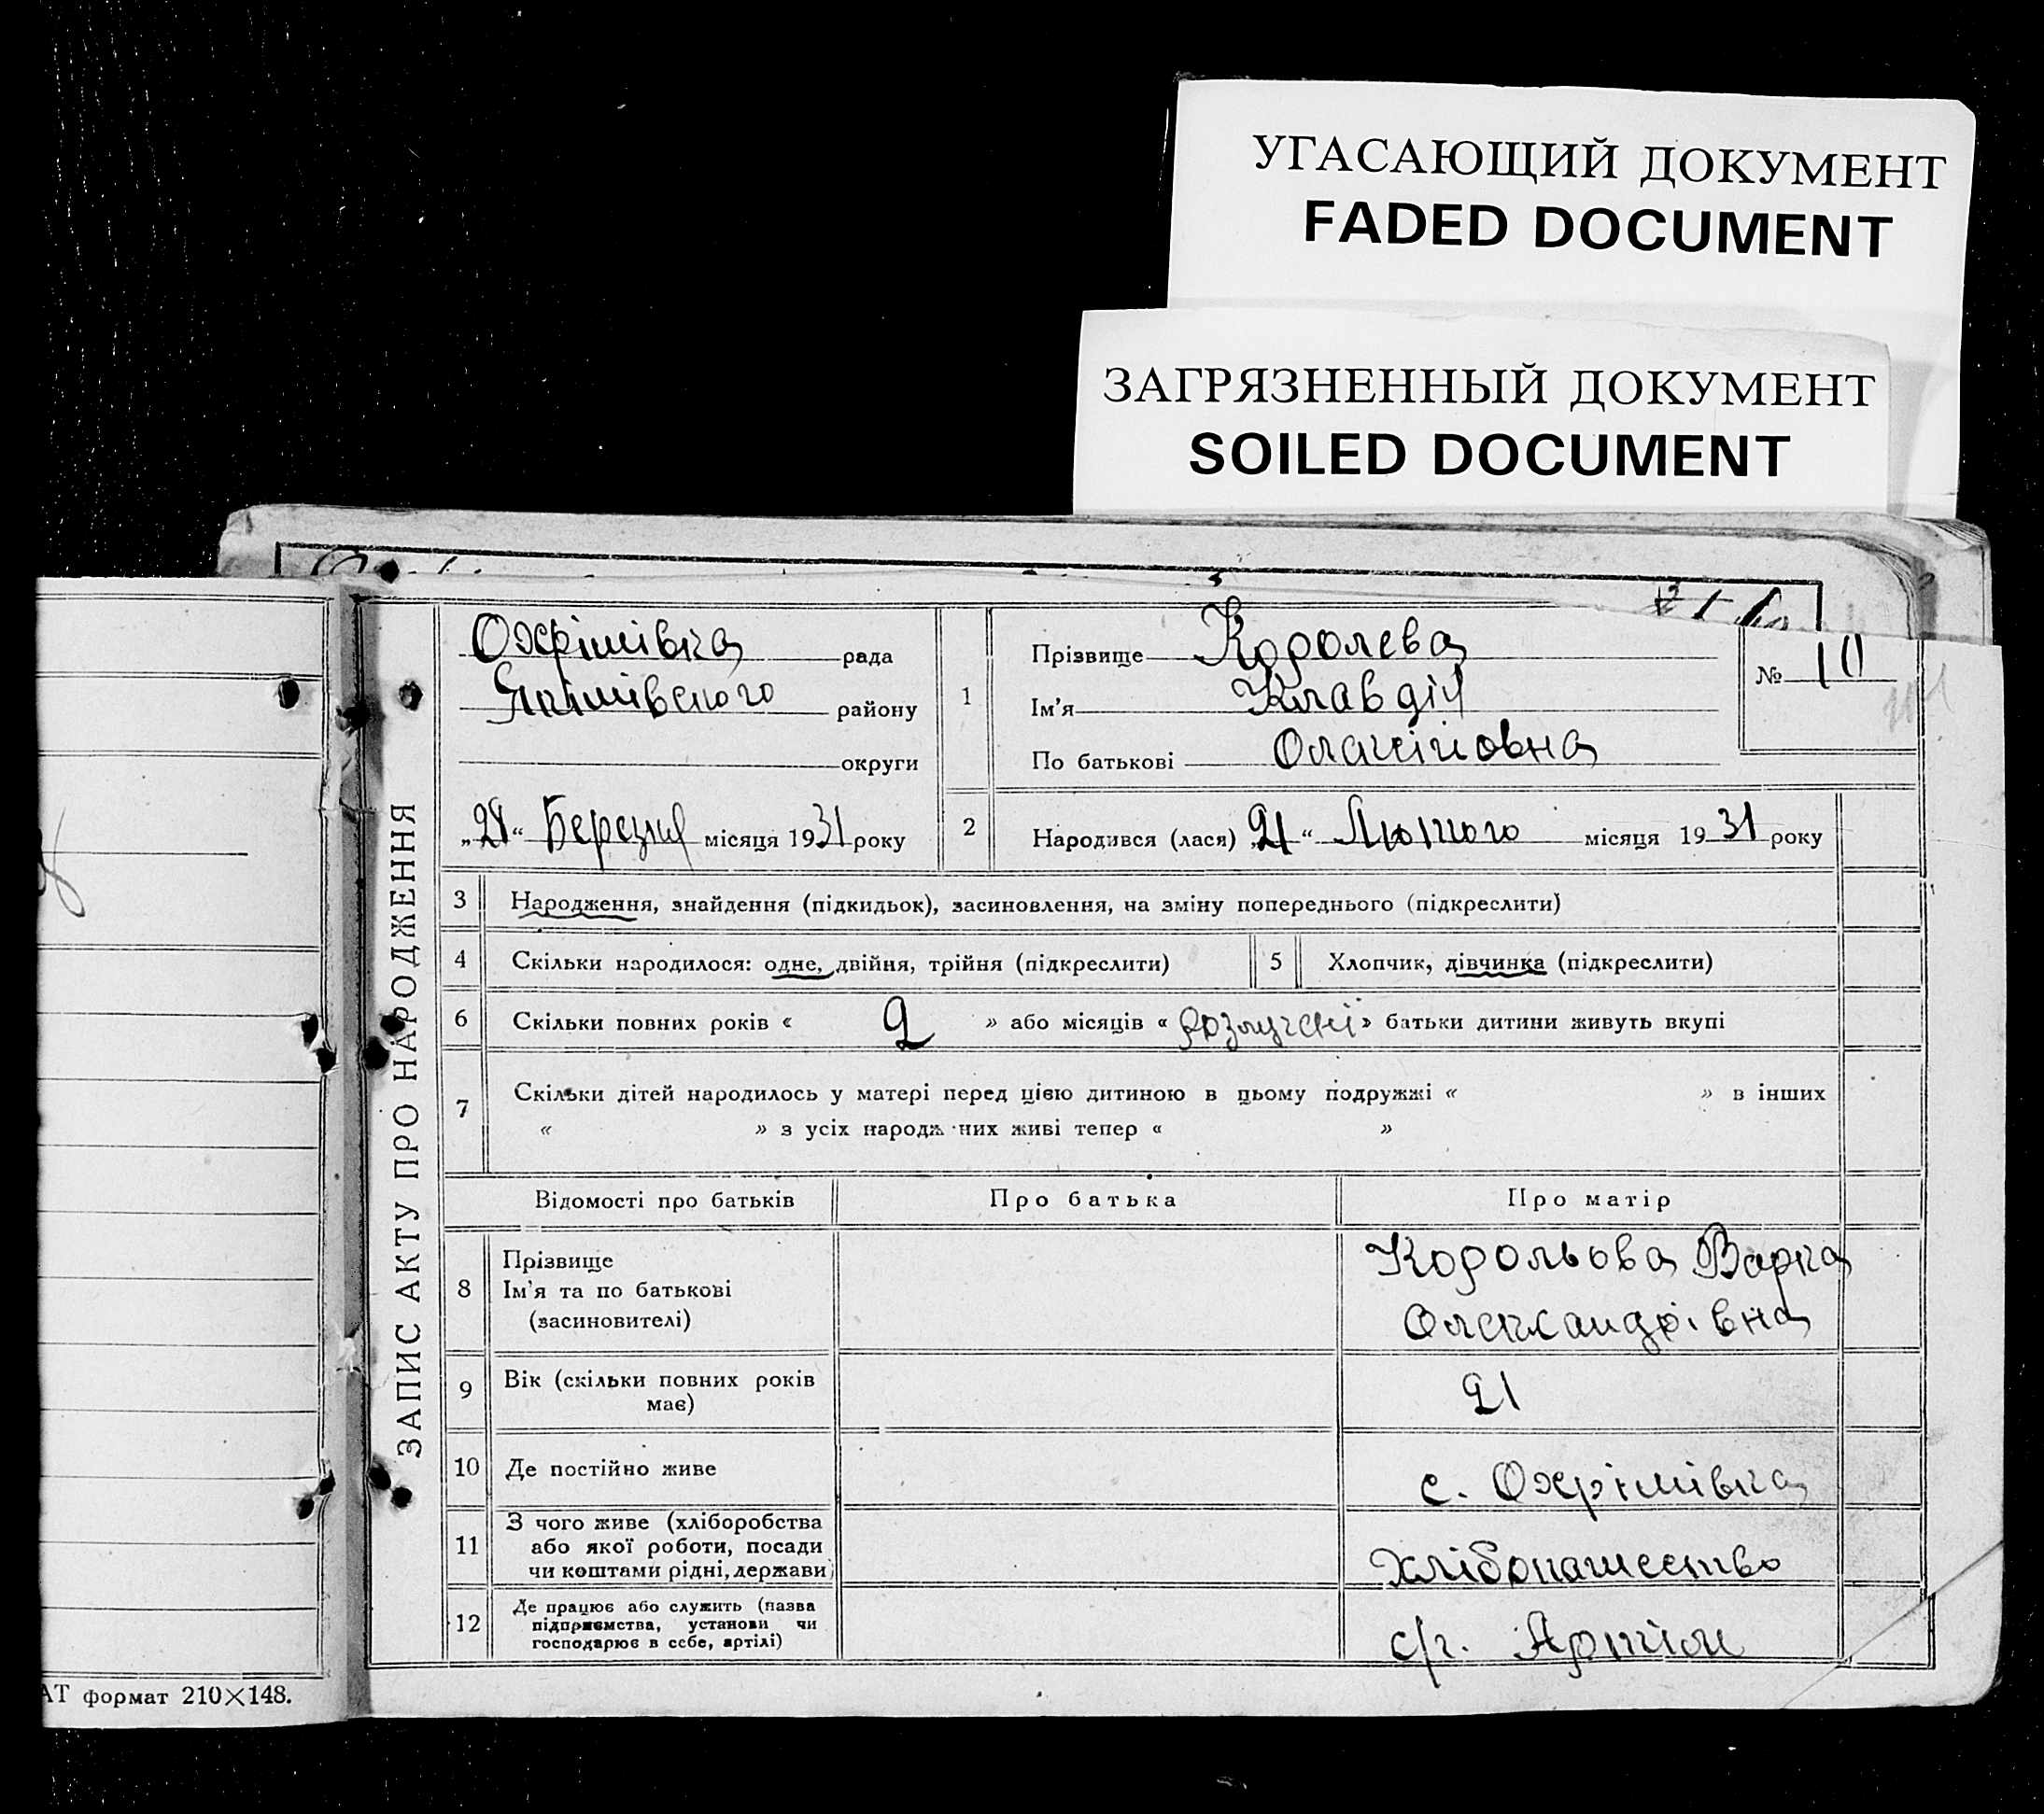 УГАСАЮЩИЙ ДОКУМЕНТ
FADED DOCUMENT
ЗАГРЯЗНЕННЫЙ ДОКУМЕНТ
SOILED DOCUMENT
АТ формат 210×148.
ЗАПИС АКТУ ПРО НАРОДЖЕННЯ
Охрімівка рада
Якімівського району
округи
„28“ Березня місяця 1931 року
1
Прізвище Королева
Ім'я Клавдія
По батькові
№ 10
2
Народився (лася) „21“ Лютого місяця 1931 року
3 Народження, знайдення (підкидьок), засиновлення, на зміну попереднього (підкреслити)
4 Скільки народилося: одне, двійня, трійня (підкреслити)
5 Хлопчик, дівчинка (підкреслити)
6 Скільки повних років « 2 » або місяців « розлучені » батьки дитини живуть вкупі
7 Скільки дітей народилось у матері перед цією дитиною в цьому подружжі « » в інших
« » з усіх народж них живі тепер « »
Відомості про батьків Про батька Про матір
8 Прізвище
Ім'я та по батькові
(засиновителі)
Корольова Варка
Олександрівна
9 Вік (скільки повних років
має)
21
10 Де постійно живе
с. Охрімівка
11 З чого живе (хліборобства
або якої роботи, посади
чи коштами рідні, держави)
хлібопашество
12 Де працює або служить (назва
підприємства, установи чи
господарює в себе, артілі)
с/г. Артіли